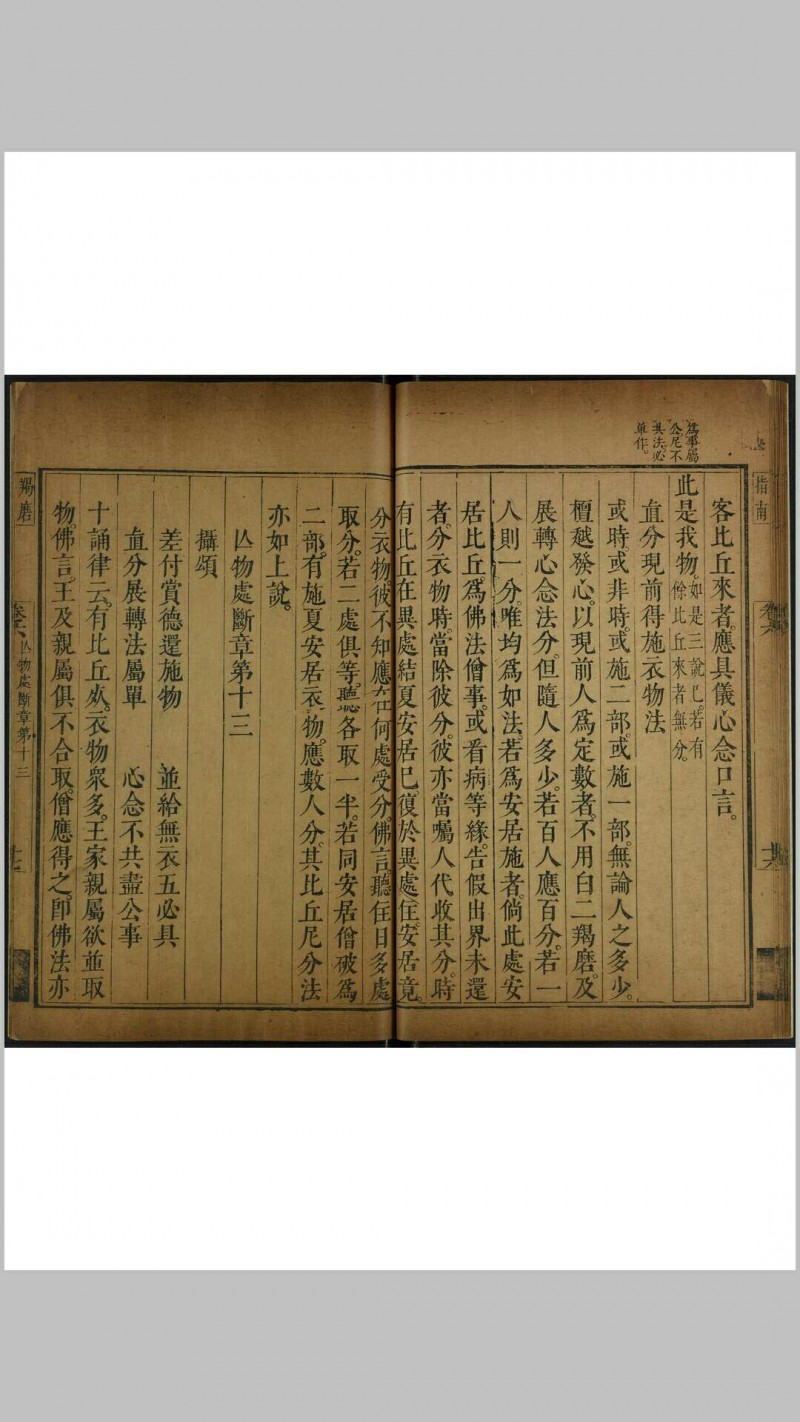 為事屬
公尼不
具法必
單作。
指南
客比丘來者。應具儀心念口言。
此是我物。如是三說已。若有餘比丘來者無分。
直分現前得施衣物法
或時。或非時。或施二部。或施一部。無論人之多少。
檀越發心。以現前人為定數者。不用白二羯磨。及
展轉心念法分。但隨人多少。若百人應百分。若一
人則一分。唯均為如法。若為安居施者。倘此處安
居比丘。為佛法僧事。或看病等緣。告假出界未還
者。分衣物時。當除彼分。彼亦當囑人代收其分。時
有比丘在異處結夏安居已。復於異處住安居竟。
分衣物。彼不知應在何處受分。佛言。聽住日多處
取分。若二處俱等。聽各取一半。若同安居僧破為
二部。有施夏安居衣物。應數人分。其比丘尼分法
亦如上說。
亾物處斷章第十三
攝頌
差付賞德還施物 並給無衣五必具
直分展轉法屬單 心念不共盡公事
十誦律云。有比丘歿。衣物眾多。王家親屬欲並取
物。佛言。王及親屬俱不合取。僧應得之。即佛法亦
羯磨
卷六
亾物處斷章第十三